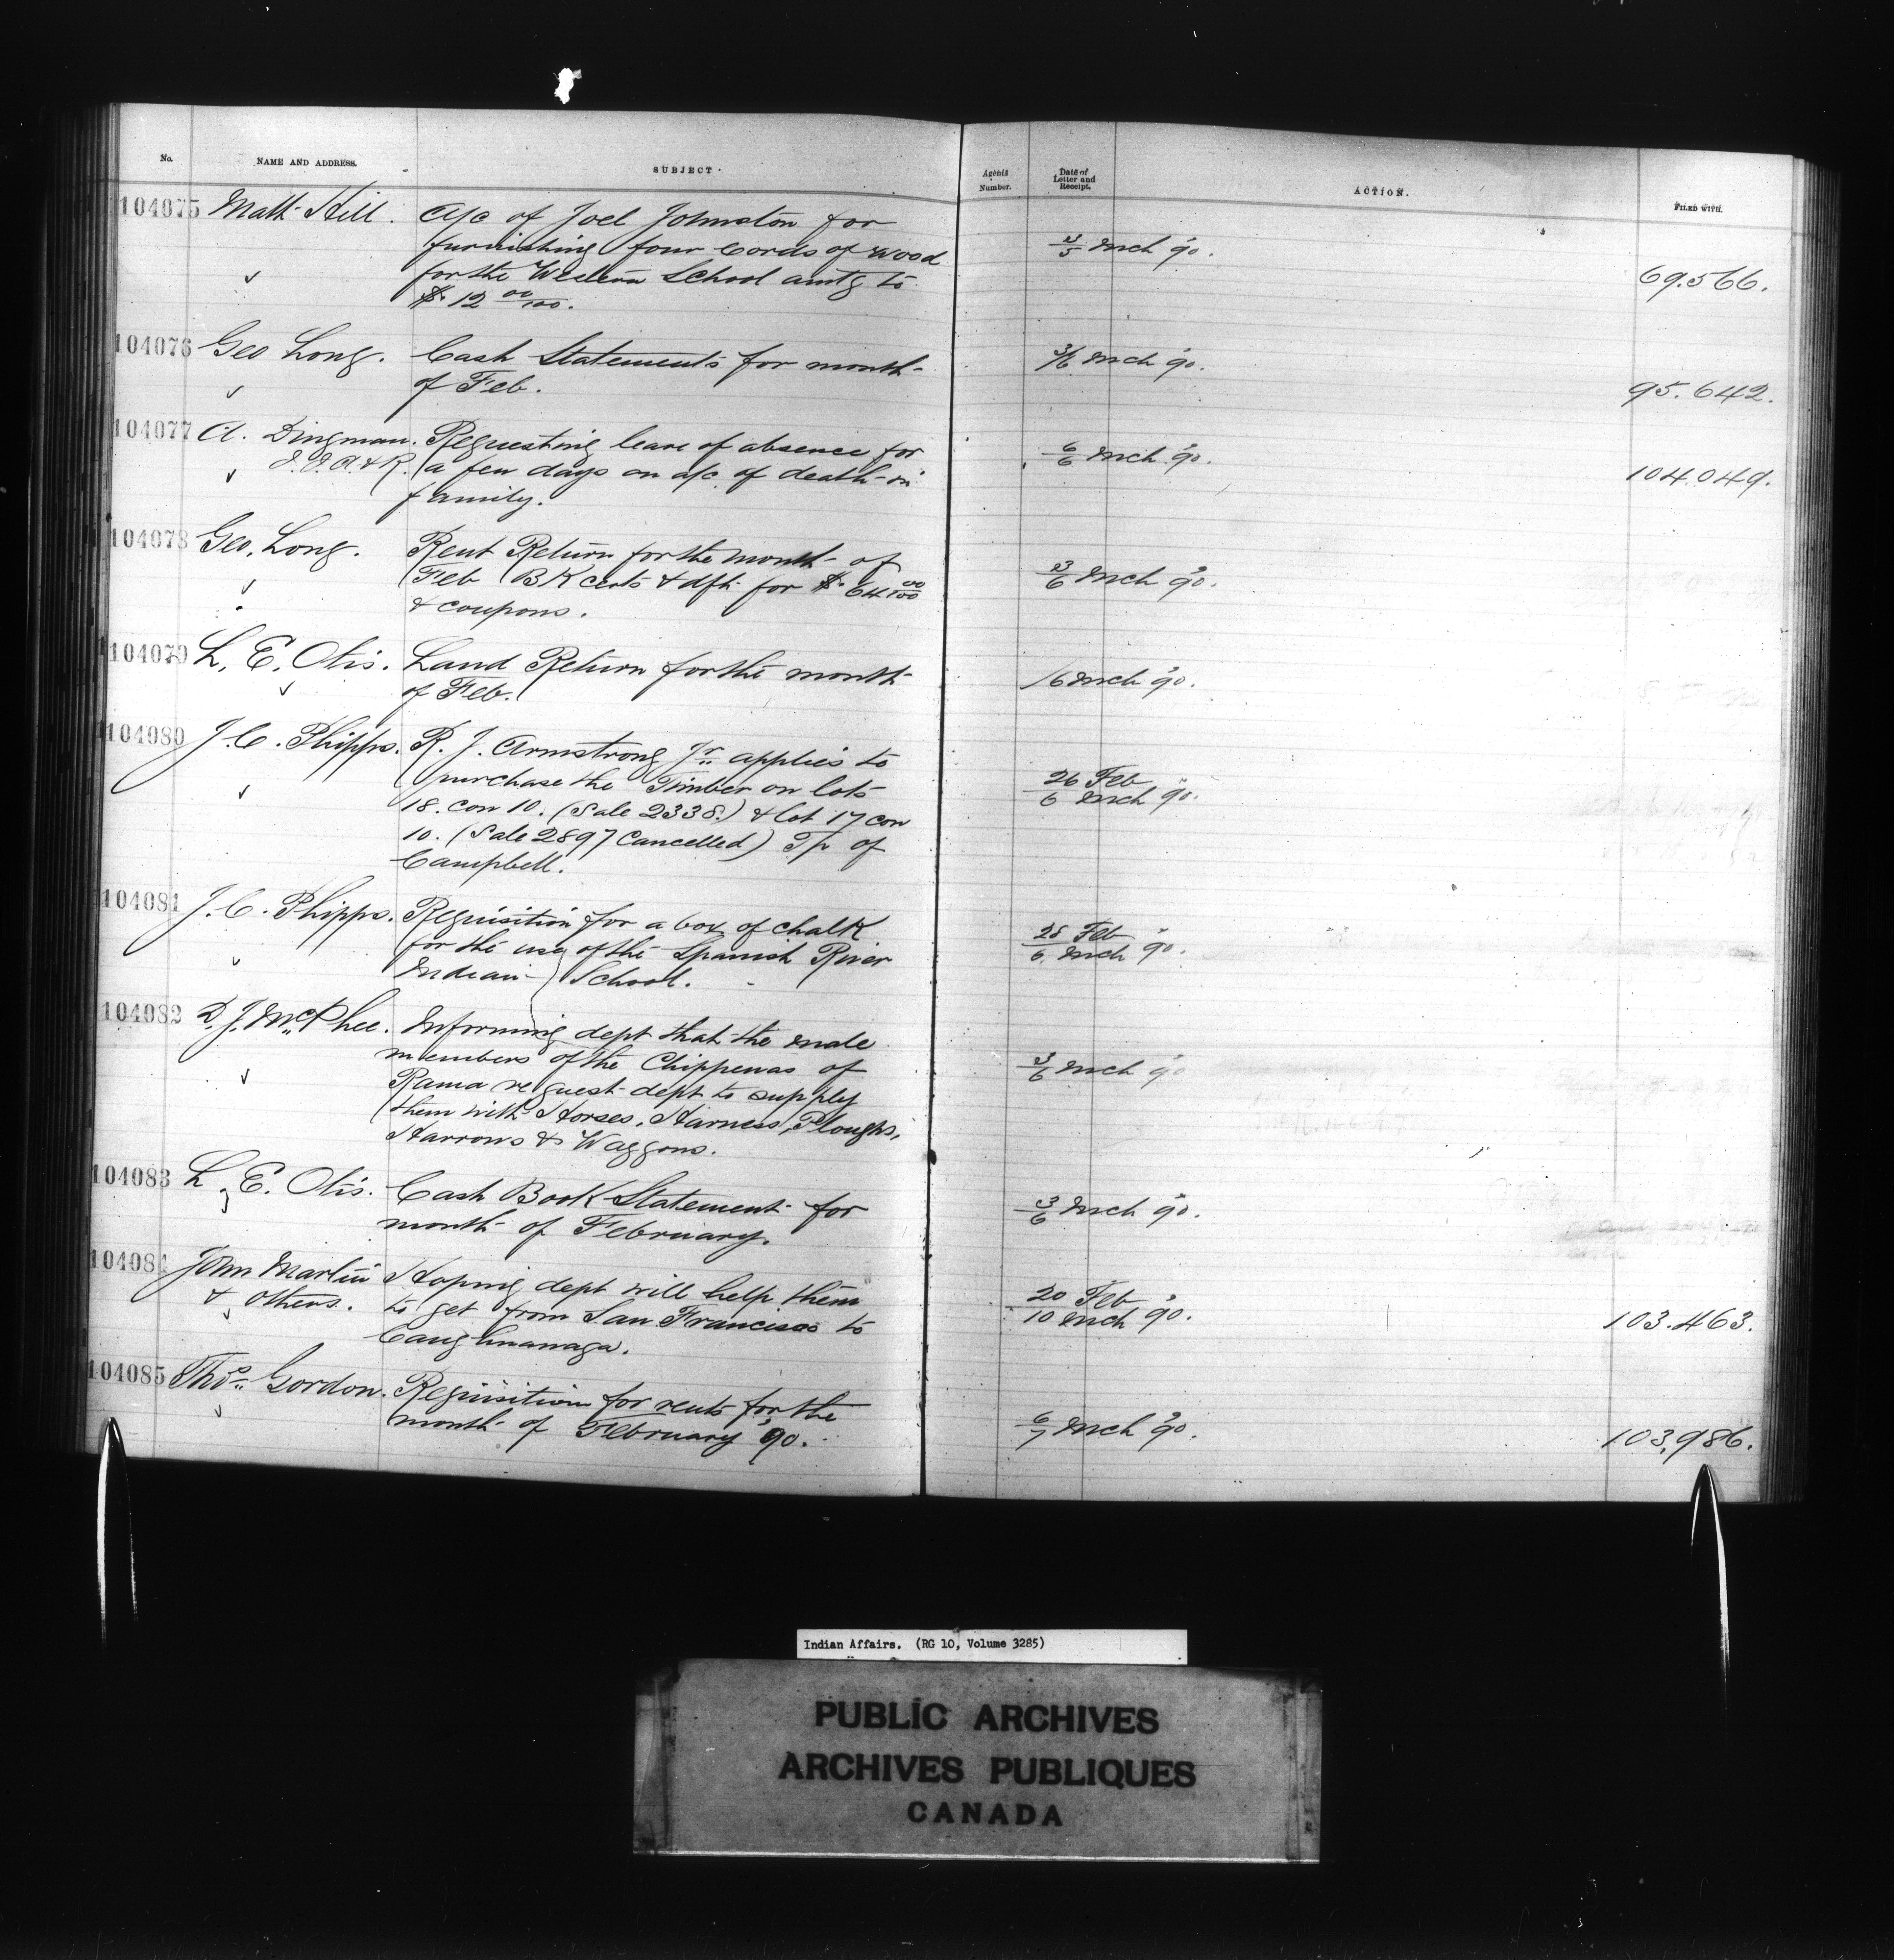 No. NAME AND ADDRESS. SUBJECT. Agents Number. Date of Letter and Receipt. ACTION. FILED WITH.
104075 Matt Hill. A/c of Joel Johnston for
furnishing four Cords of wood
for the Western School amtg to
$12 00/100.
3/5 Mch 90.
69.566.
104076 Geo Long. Cash Statements for month
of Feb.
3/6 Mch 90.
95.642.
104077 A. Dingman. Requesting leave of absence for
I.I.A.&R. a few days on a/c of death in
family.
6/6 Mch 90.
104.049.
104078 Geo. Long. Rent Return for the month of
Feb BK certs & dft for $64 00/100
& coupons.
3/6 Mch 90.
104079 L. E. Otis. Land Return for the month
of Feb.
/6 Mch 90.
104080 J. C. Phipps. R. J. Armstrong Jr. applies to
purchase the Timber on lots
18. con 10. (Sale 2338.) & lot 17 con
10. (Sale 2897 Cancelled) Tp of
Campbell.
26 Feb
6 Mch 90.
104081 J. C. Phipps. Requisition for a box of chalk
for the use of the Spanish River
Indian School.
28 Feb
6. Mch 90.
104082 D. J. McPhee. Informing dept that the male
members of the Chippewas of
Rama request dept to supply
them with Horses, Harness, Ploughs,
Harrows & Waggons.
3/6 Mch 90
104083 L. E. Otis. Cash Book Statement for
month of February.
3/6 Mch 90.
104084 John Martin Hoping dept will help them
& Others. to get from San Francisco to
Caughnawaga.
20 Feb
10 Mch 90.
103.463.
104085 Thos. Gordon. Requisition for rents for the
month of February '90.
6/7 Mch 90.
103,986.
Indian Affairs. (RG 10, Volume 3285)
PUBLIC ARCHIVES
ARCHIVES PUBLIQUES
CANADA